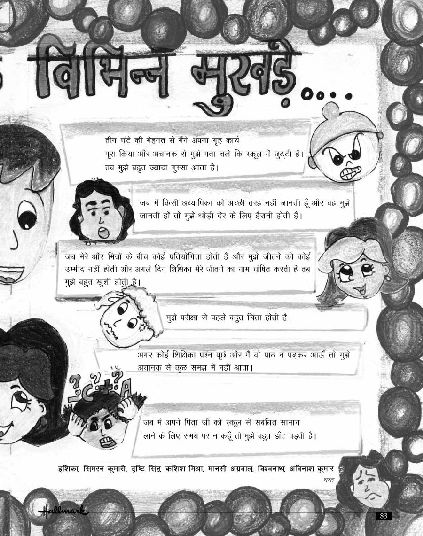 विभिन्न मुखड़े....
तीन घंटे की मेहनत से मैंने अपना गृह कार्य
पूरा किया और अचानक से मुझे पता चले कि स्कूल में छुट्टी है।
तब मुझे बहुत ज्यादा गुस्सा आता है।
जब मैं किसी अध्यापिका को अच्छी तरह नहीं जानती हूँ और वह मुझे
जानती हो तो मुझे थोड़ी देर के लिए हैरानी होती है।
जब मेरे और मित्रों के बीच कोई प्रतियोगिता होती है और मुझे जीतने की कोई
उम्मीद नहीं होती और अगले दिन शिक्षिका मेरे जीतने का नाम घोषित करती है तब
मुझे बहुत खुशी होती है।
मुझे परीक्षा से पहले बहुत चिंता होती है
अगर कोई शिक्षिका प्रश्न पूछे और मैं वो पाठ न पढ़कर आऊँ तो मुझे
अचानक से कुछ समझ में नहीं आता।
जब मैं अपने पिता जी को स्कूल से संबंधित सामान
लाने के लिए समय पर न कहूँ तो मुझे बहुत डाँट पड़ती है।
इशिका, सिमरन कुमारी, दृष्टि सिंह, कशिश मिश्रा, मानसी अग्रवाल, विश्वनाथ, अविनाश कुमार
Hallmark
53